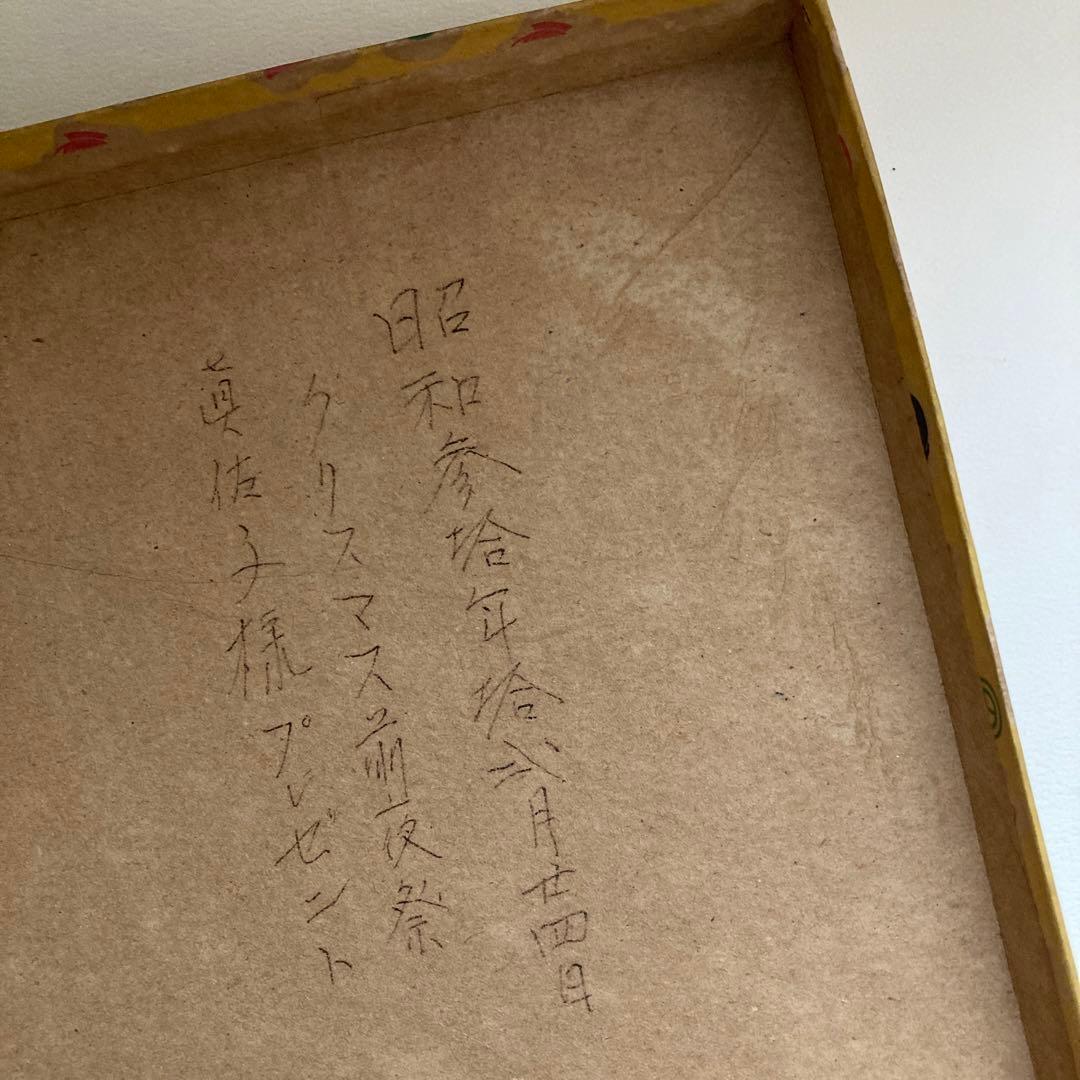 昭和参拾年拾弐月廿四日
クリスマス前夜祭
眞佐子様プレゼント